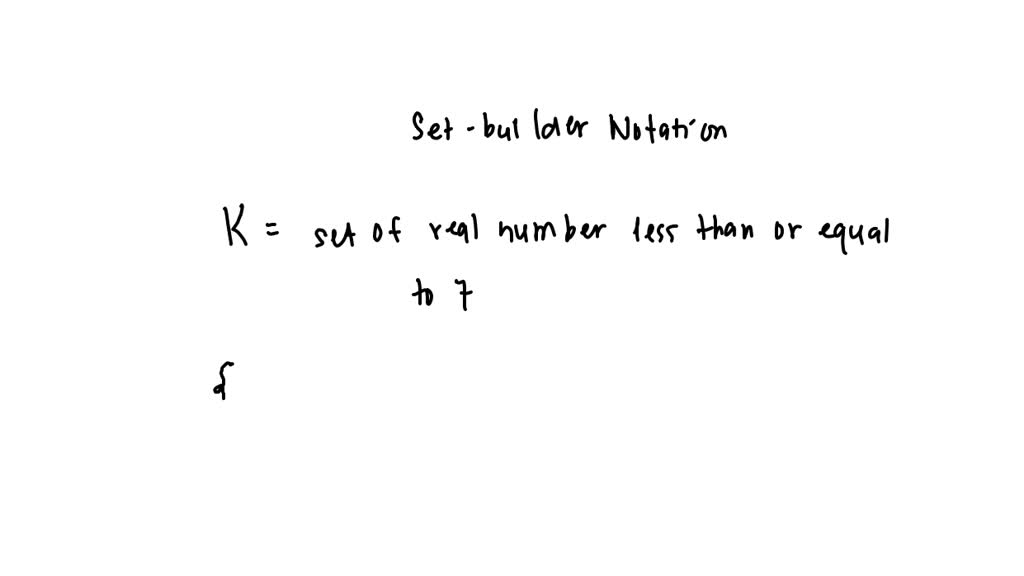 Set-builder Notation
K = set of real number less than or equal
to 7
{